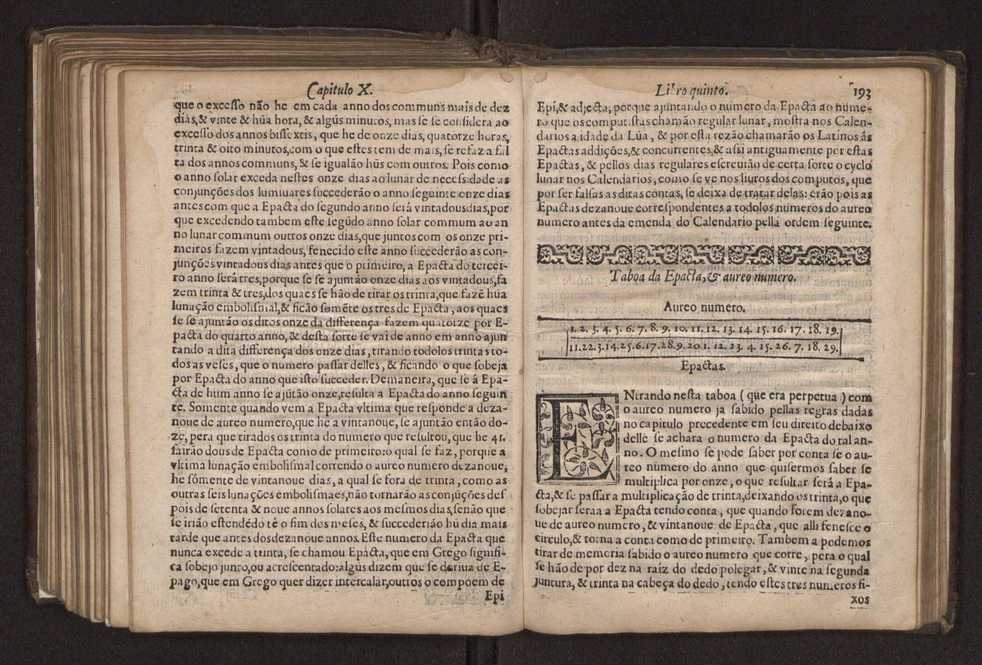 Capitulo X.
que o excesso não he em cada anno dos communs mais de dez
dias,& vinte & hũa hora, & algũs minutos, mas se se considera ao
excesso dos annos bissextis, que he de onze dias, quatorze horas,
trinta & oito minutos,com o que estes tem de mais, se refaz a fal
ta dos annos communs, & se igualão hũs com outros. Pois como
o anno solar exceda nestes onze dias ao lunar de necessidade as
conjunções dos lumiuares succederão o anno seguinte onze dias
antes com que a Epacta do segundo anno será vintadous dias,por
que excedendo tambem este segũdo anno solar commum ao an
no lunar commum outros onze dias,que juntos com os onze pri-
meiros fazem vintadous, fenecido este anno succederão as con-
junções vintadous dias antes que o primeiro, a Epacta do tercei-
ro anno será tres,porque se se ajuntão onze dias aos vintadous,fa
zem trinta & tres,dos quaes se hão de tirar os trinta,que fazẽ hũa
lunação embolismal,& ficão sómẽte os tres de Epacta, aos quaes
se se ajuntão os ditos onze da differença fazem quatorze por E-
pacta do quarto anno, & desta sorte se vai de anno em anno ajun
tando a dita differença dos onze dias, tirando todolos trintas to-
dos as veses, que o numero passar delles, & ficando o que sobeja
por Epacta do anno que isto succeder. Demaneira, que se á Epa-
cta de hum anno se ajũtão onze,resulta a Epacta do anno seguin
te. Somente quando vem a Epacta vltima que responde a deza-
noue de aureo numero,que he a vintanoue, se ajuntão então do-
ze, pera que tirados os trinta do numero que resultou, que he 41.
fairão dous de Epacta como de primeiro:o qual se faz, porque a
vltima lunação embolismal correndo o aureo numero dezanoue,
he sómente de vintanoue dias, a qual se fora de trinta, como as
outras seis lunações embolismaes,não tornarão as conjũções des
pois de setenta & noue annos solares aos mesmos dias,senão que
se irião estendẽdo tè o fim dos meses, & succederião hũ dia mais
tarde que antes dos dezanoue annos. Este numero da Epacta que
nunca excede a trinta, se chamou Epacta,que em Grego signifi-
ca sobejo junto,ou acrescentado:algũs dizem que se deriua de E-
pago,que em Grego quer dizer intercalar,outros o compoem de
Epi
Libro quinto. 193
Epi,& adjecta, porque ajuntando o numero da Epacta ao nume-
ro que os computistas chamão regular lunar, mostra nos Calen-
darios a idade da Lũa, & por esta rezão chamarão os Latinos ás
Epactas addições,& concurrentes,& assi antiguamente por estas
Epactas, & pellos dias regulares escreuião de certa sorte o cyclo
lunar nos Calendarios, como se ve nos liuros dos computos, que
por ser falsas as ditas contas, se deixa de tratar delas: erão pois as
Epactas dezanoue correspondentes a todolos numeros do aureo
numero antes da emenda do Calendario pella ordem seguinte.
Taboa da Epacta,& aureo numero.
Aureo numero.
1. 2. 3. 4. 5. 6. 7. 8. 9. 10. 11. 12. 13. 14. 15. 16. 17. 18. 19.
11.22.3.14.25.6.17.28.9. 20 1. 12. 23. 4. 15. 26. 7. 18. 29.
Epactas.
ENtrando nesta taboa ( que era perpetua ) com
o aureo numero ja sabido pellas regras dadas
no capitulo precedente em seu direito debaixo
delle se achara o numero da Epacta do tal an-
no. O mesmo se pode saber por conta se o au-
reo numero do anno que quisermos saber se
multiplica por onze, o que resultar será a Epa-
cta,& se passar a multiplicação de trinta,deixando os trinta,o que
sobejar seraa a Epacta tendo conta, que quando forem dezano-
ue de aureo numero, & vintanoue de Epacta, que alli fenesce o
circulo,& torna a conta como de primeiro. Tambem a podemos
tirar de memoria sabido o aureo numero que corre, pera o qual
se hão de por dez na raiz do dedo polegar, & vinte na segunda
juntura, & trinta na cabeça do dedo, tendo estes tres numeros fi-
xos